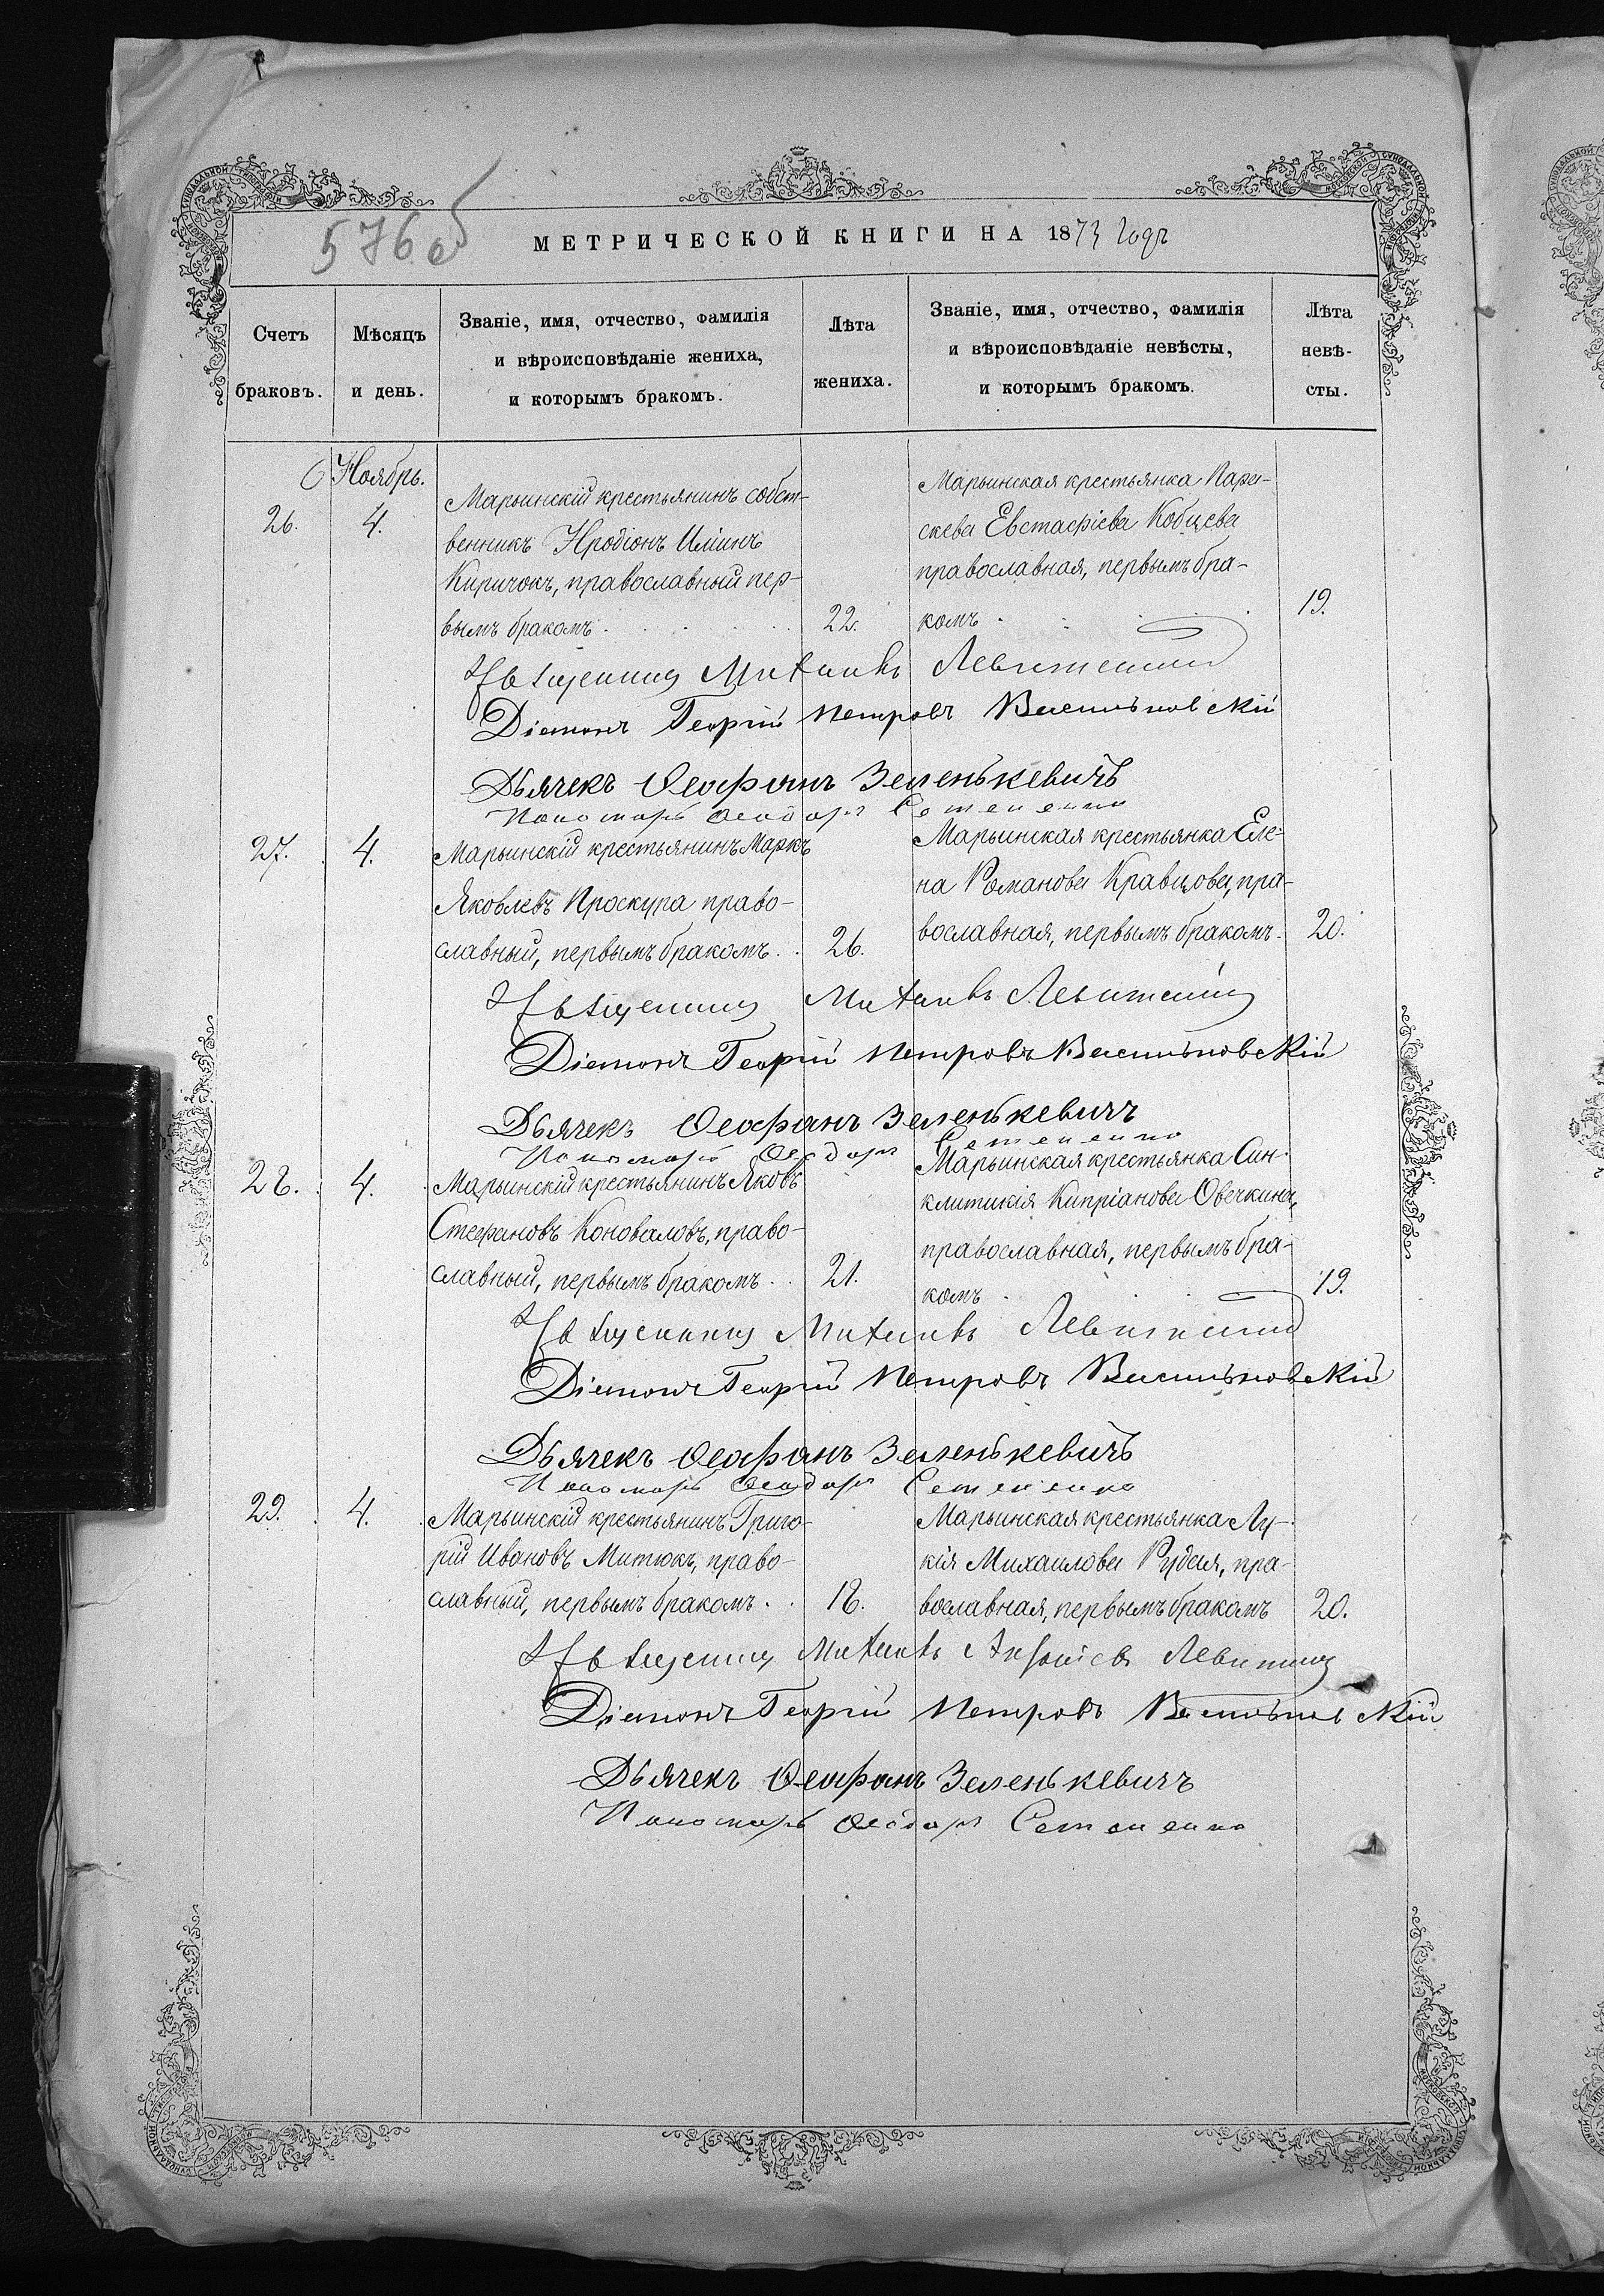 576об
МЕТРИЧЕСКОЙ КНИГИ НА 1873 годъ
Счетъ браковъ.
Мѣсяцъ и день.
Званіе, имя, отчество, фамилія
и вѣроисповѣданіе жениха,
и которымъ бракомъ.
Лѣта жениха.
Званіе, имя, отчество, фамилія
и вѣроисповѣданіе невѣсты,
и которымъ бракомъ.
Лѣта невѣ-
сты.
Ноябрь.
26.
4.
Марьинскій крестьянинъ собст-
венникъ Иродіонъ Иліинъ
Киричокъ, православный пер-
вымъ бракомъ
22.
Марьинская крестьянка Пара-
скева Евстафіева Кобцева
православная, первымъ бра-
комъ
19.
Священник Михаилъ Левитскій
Діаконъ Георгій Петровъ Васильковскій
Дьячекъ Ѳеофанъ Зеленькевичъ
Пономарь Ѳеодоръ Семененко
27.
4.
Марьинскій крестьянинъ Маркъ
Яковлевъ Проскура право-
славный, первымъ бракомъ
26.
Марьинская крестьянка Еле-
на Романова Кравцова, пра-
вославная, первымъ бракомъ
20.
Священник Михаилъ Левитскій
Діаконъ Георгій Петровъ Васильковскій
Дьячекъ Ѳеофанъ Зеленькевичъ
Пономарь Ѳеодоръ Семененко
28.
4.
Марьинскій крестьянинъ Яковъ
Стефановъ Коноваловъ, право-
славный, первымъ бракомъ
21.
Марьинская крестьянка Син-
клитикія Кипріанова Овечкина,
православная, первымъ бра-
комъ
19.
Священник Михаилъ Левитскій
Діаконъ Георгій Петровъ Васильковскій
Дьячекъ Ѳеофанъ Зеленькевичъ
Пономарь Ѳеодоръ Семененко
29.
4.
Марьинскій крестьянинъ Григо-
рій Ивановъ Митюкъ, право-
славный, первымъ бракомъ
18.
Марьинская крестьянка Лу-
кія Михаилова Рудая, пра-
вославная, первымъ бракомъ
20.
Священник Михаилъ Левитскій
Діаконъ Георгій Петровъ Васильковскій
Дьячекъ Ѳеофанъ Зеленькевичъ
Пономарь Ѳеодоръ Семененко